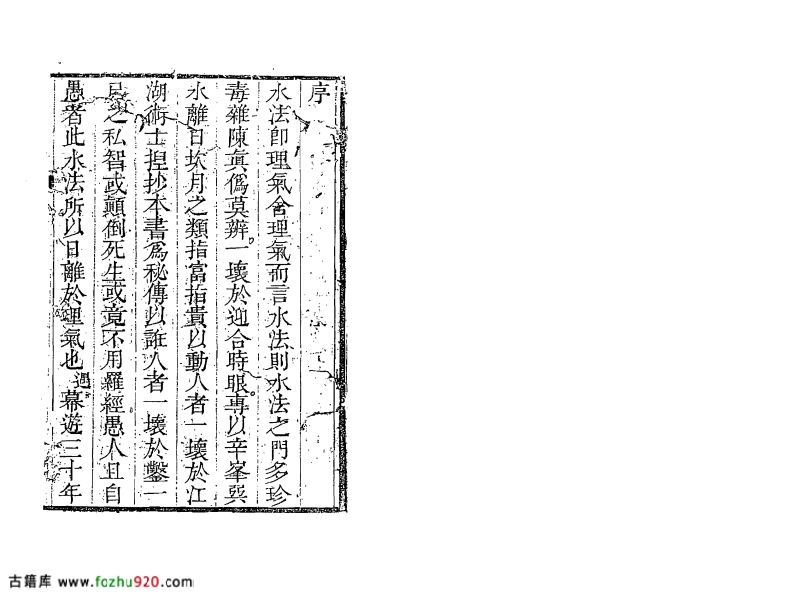 序
水法卽理氣舍理氣而言水法則水法之門多珍
毒雜陳眞僞莫辨一壞於迎合時眼專以辛峯巽
水離日坎月之類指富指貴以動人者一壞於江
湖術士捏抄本書爲秘傳以誑人者一壞於鑿一
己之私智或顚倒死生或竟不用羅經愚人且自
愚者此水法所以日離於理氣也遇幕遊三十年
古籍库 www.fozhu920.com